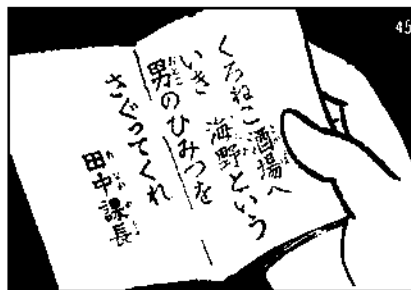 くろねこ酒場へ
いき 海野という
男のひみつを
さぐってくれ
田中課長
45